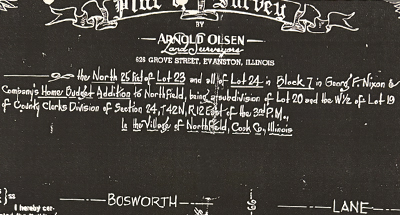 Plat Survey
BY
ARNOLD OLSEN
Land Surveyors
628 GROVE STREET, EVANSTON, ILLINOIS
the North 25 of Lot 23 and all of Lot 24 in Block 7 in George F. Nixon &
Company's Home Budget Addition to Northfield, being a subdivision of Lot 20 and the W½ of Lot 19
of County Clerks Division of Section 24, T42N, R12 East of the 3rd P.M.,
In the Village of Northfield, Cook Co., Illinois
BOSWORTH
LANE
} ss
I hereby cer-